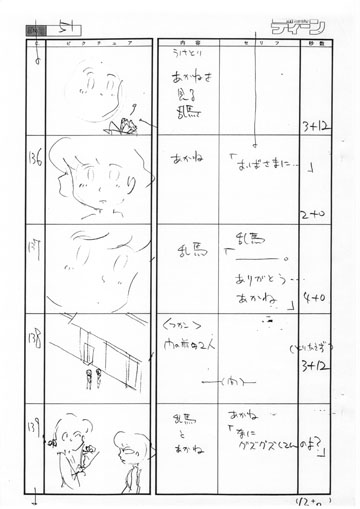 51
ディーン
C
ピクチュア
内容
セリフ
秒数
うけとり
あかねを
見る
乱馬
3+12
136
あかね
「おばさまに…」
2+0
137
乱馬
乱馬
「
ありがとう…
あかね」
4+0
138
〈つかこ〉
内の前の2人
(内)
3+12
139
乱馬
と
あかね
あかね
「なに
グズグズしてんのよ?」